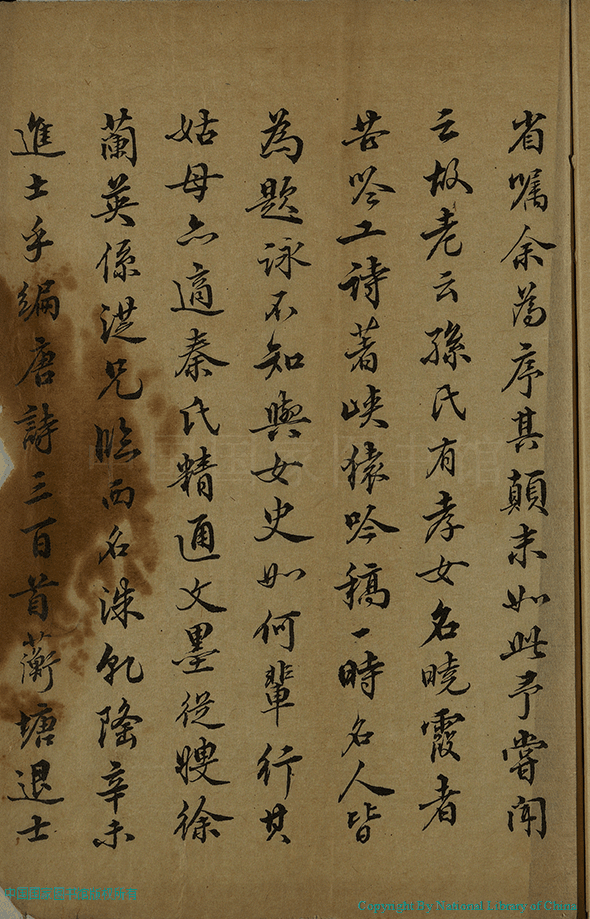 省嘱余為序其顛末如此予嘗聞
云故老云孫氏有孝女名曉霞者
苦吟工詩著峡猿吟稿一時名人皆
為題詠不知與女史如何輩行其
姑母亦適秦氏精通文墨從嫂徐
蘭英係從兄臨而名洙乹隆辛未
進士手編唐詩三百首蘅塘退士
Copyright by National Library of China